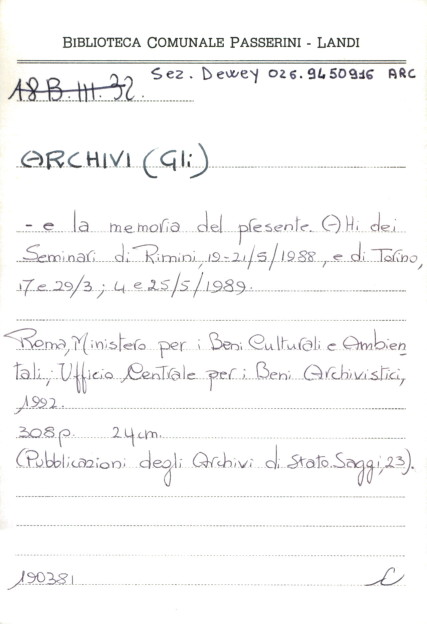 BIBLIOTECA COMUNALE PASSERINI - LANDI
Sez. Dewey 026.9450916 ARC
18B.III.32.
ARCHIVI (Gli)
- e la memoria del presente. Atti dei
Seminari di Rimini, 19-21/5/1988, e di Torino,
17 e 29/3; 4 e 25/5/1989.
Roma, Ministero per i Beni Culturali e Ambien
tali, Ufficio Centrale per i Beni Archivistici,
1992.
308p. 24cm.
(Pubblicazioni degli Archivi di Stato. Saggi, 23).
190381 C